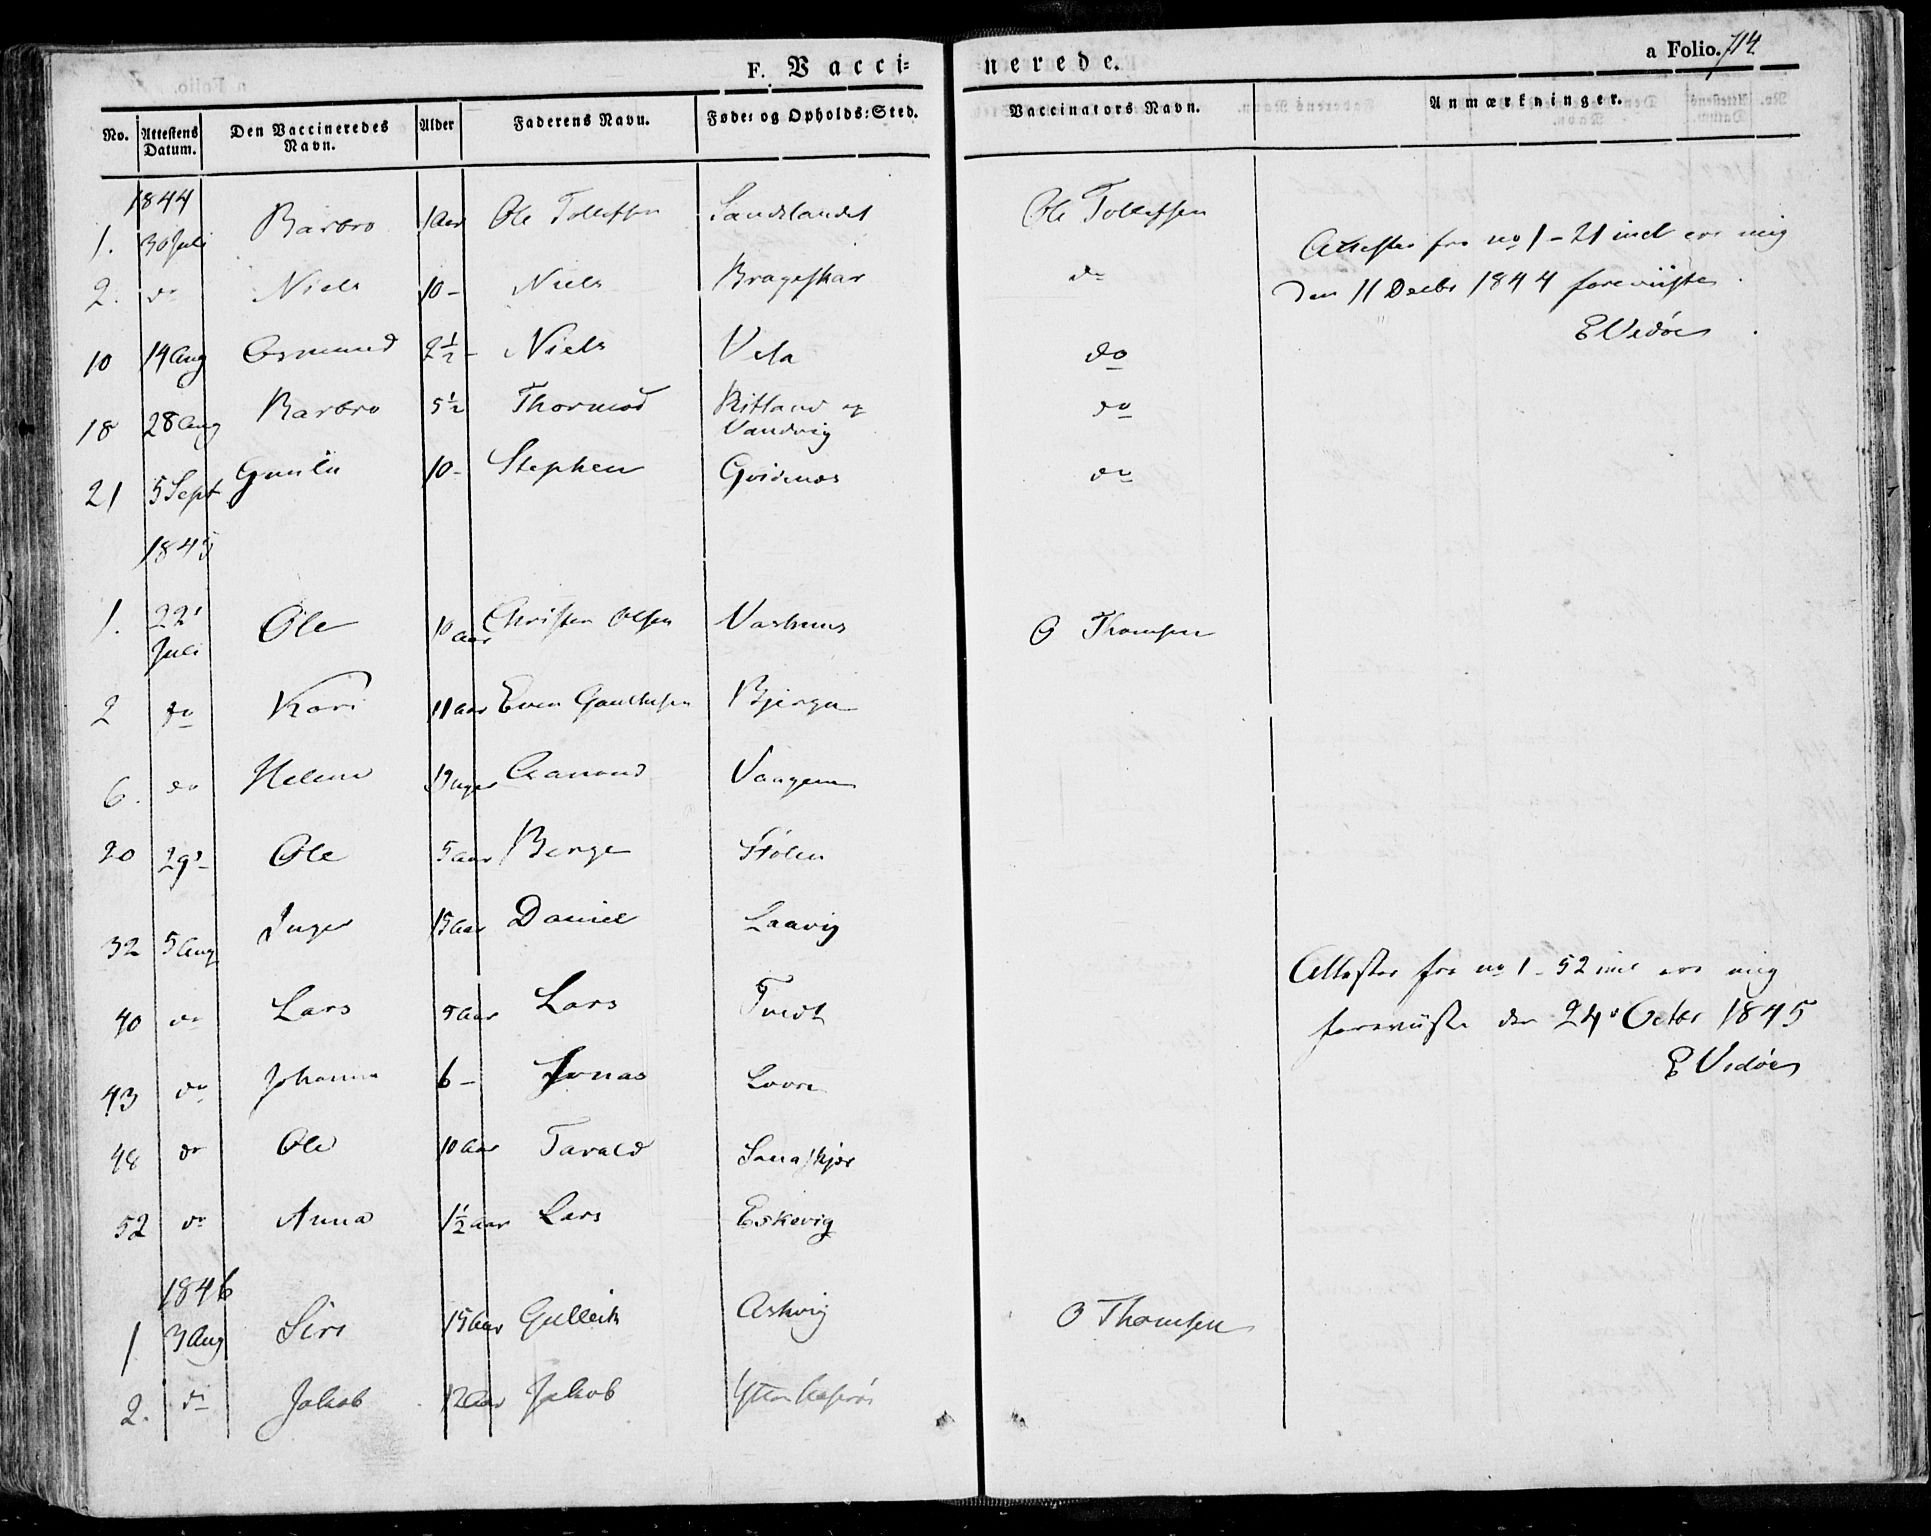 F. Vacci=
nerede.
a Folio. 714
No. Attestens Datum. Den Vaccineredes Navn. Alder Faderens Navn. Føde- og Opholds-Sted. Vaccinators Navn. Anmærkninger.
1844
1. 30 Juli Barbro 1 Aar Ole Tollefsen Sandslandet Ole Tollefsen
Attester fra no 1 - 21 incl ere mig
2. do Niels 10 - Niels Brageskar do
den 11 Decbr 1844 foreviiste.
E Vidøe
10 14 Aug Osmund 2 1/2 - Niels Vela do
18 28 Aug Barbro 5 1/2 Thormod Ritland og Vandvig do
21 5 Sept Gunla 10 - Stephen Gvidenæs do
1845
1. 22 Juli Ole 10 aar Christen Olsen Vashuus O Thomsen
2 do Kari 11 aar Even Gauthesen Bjerge
6. do Helene 19 uger Aamund Vaagen
20 29 Ole 5 aar Børge Stølen
32 5 Aug Inger 15 aar Daniel Laavig
Attester fra no 1 - 52 incl ere mig
40 do Lars 5 aar Lars Tvedt
foreviiste den 24 Octbr 1845
E Vidøe
43 do Johanna 6 - Jonas Lovre
48 do Ole 10 aar Tarald
52 do Anna 1 1/2 aar Lars Eskevig
1846
1 3 Aug Siri 15 aar Gulleik Askvig O Thomsen
2. do Jakob 12 aar Jakob